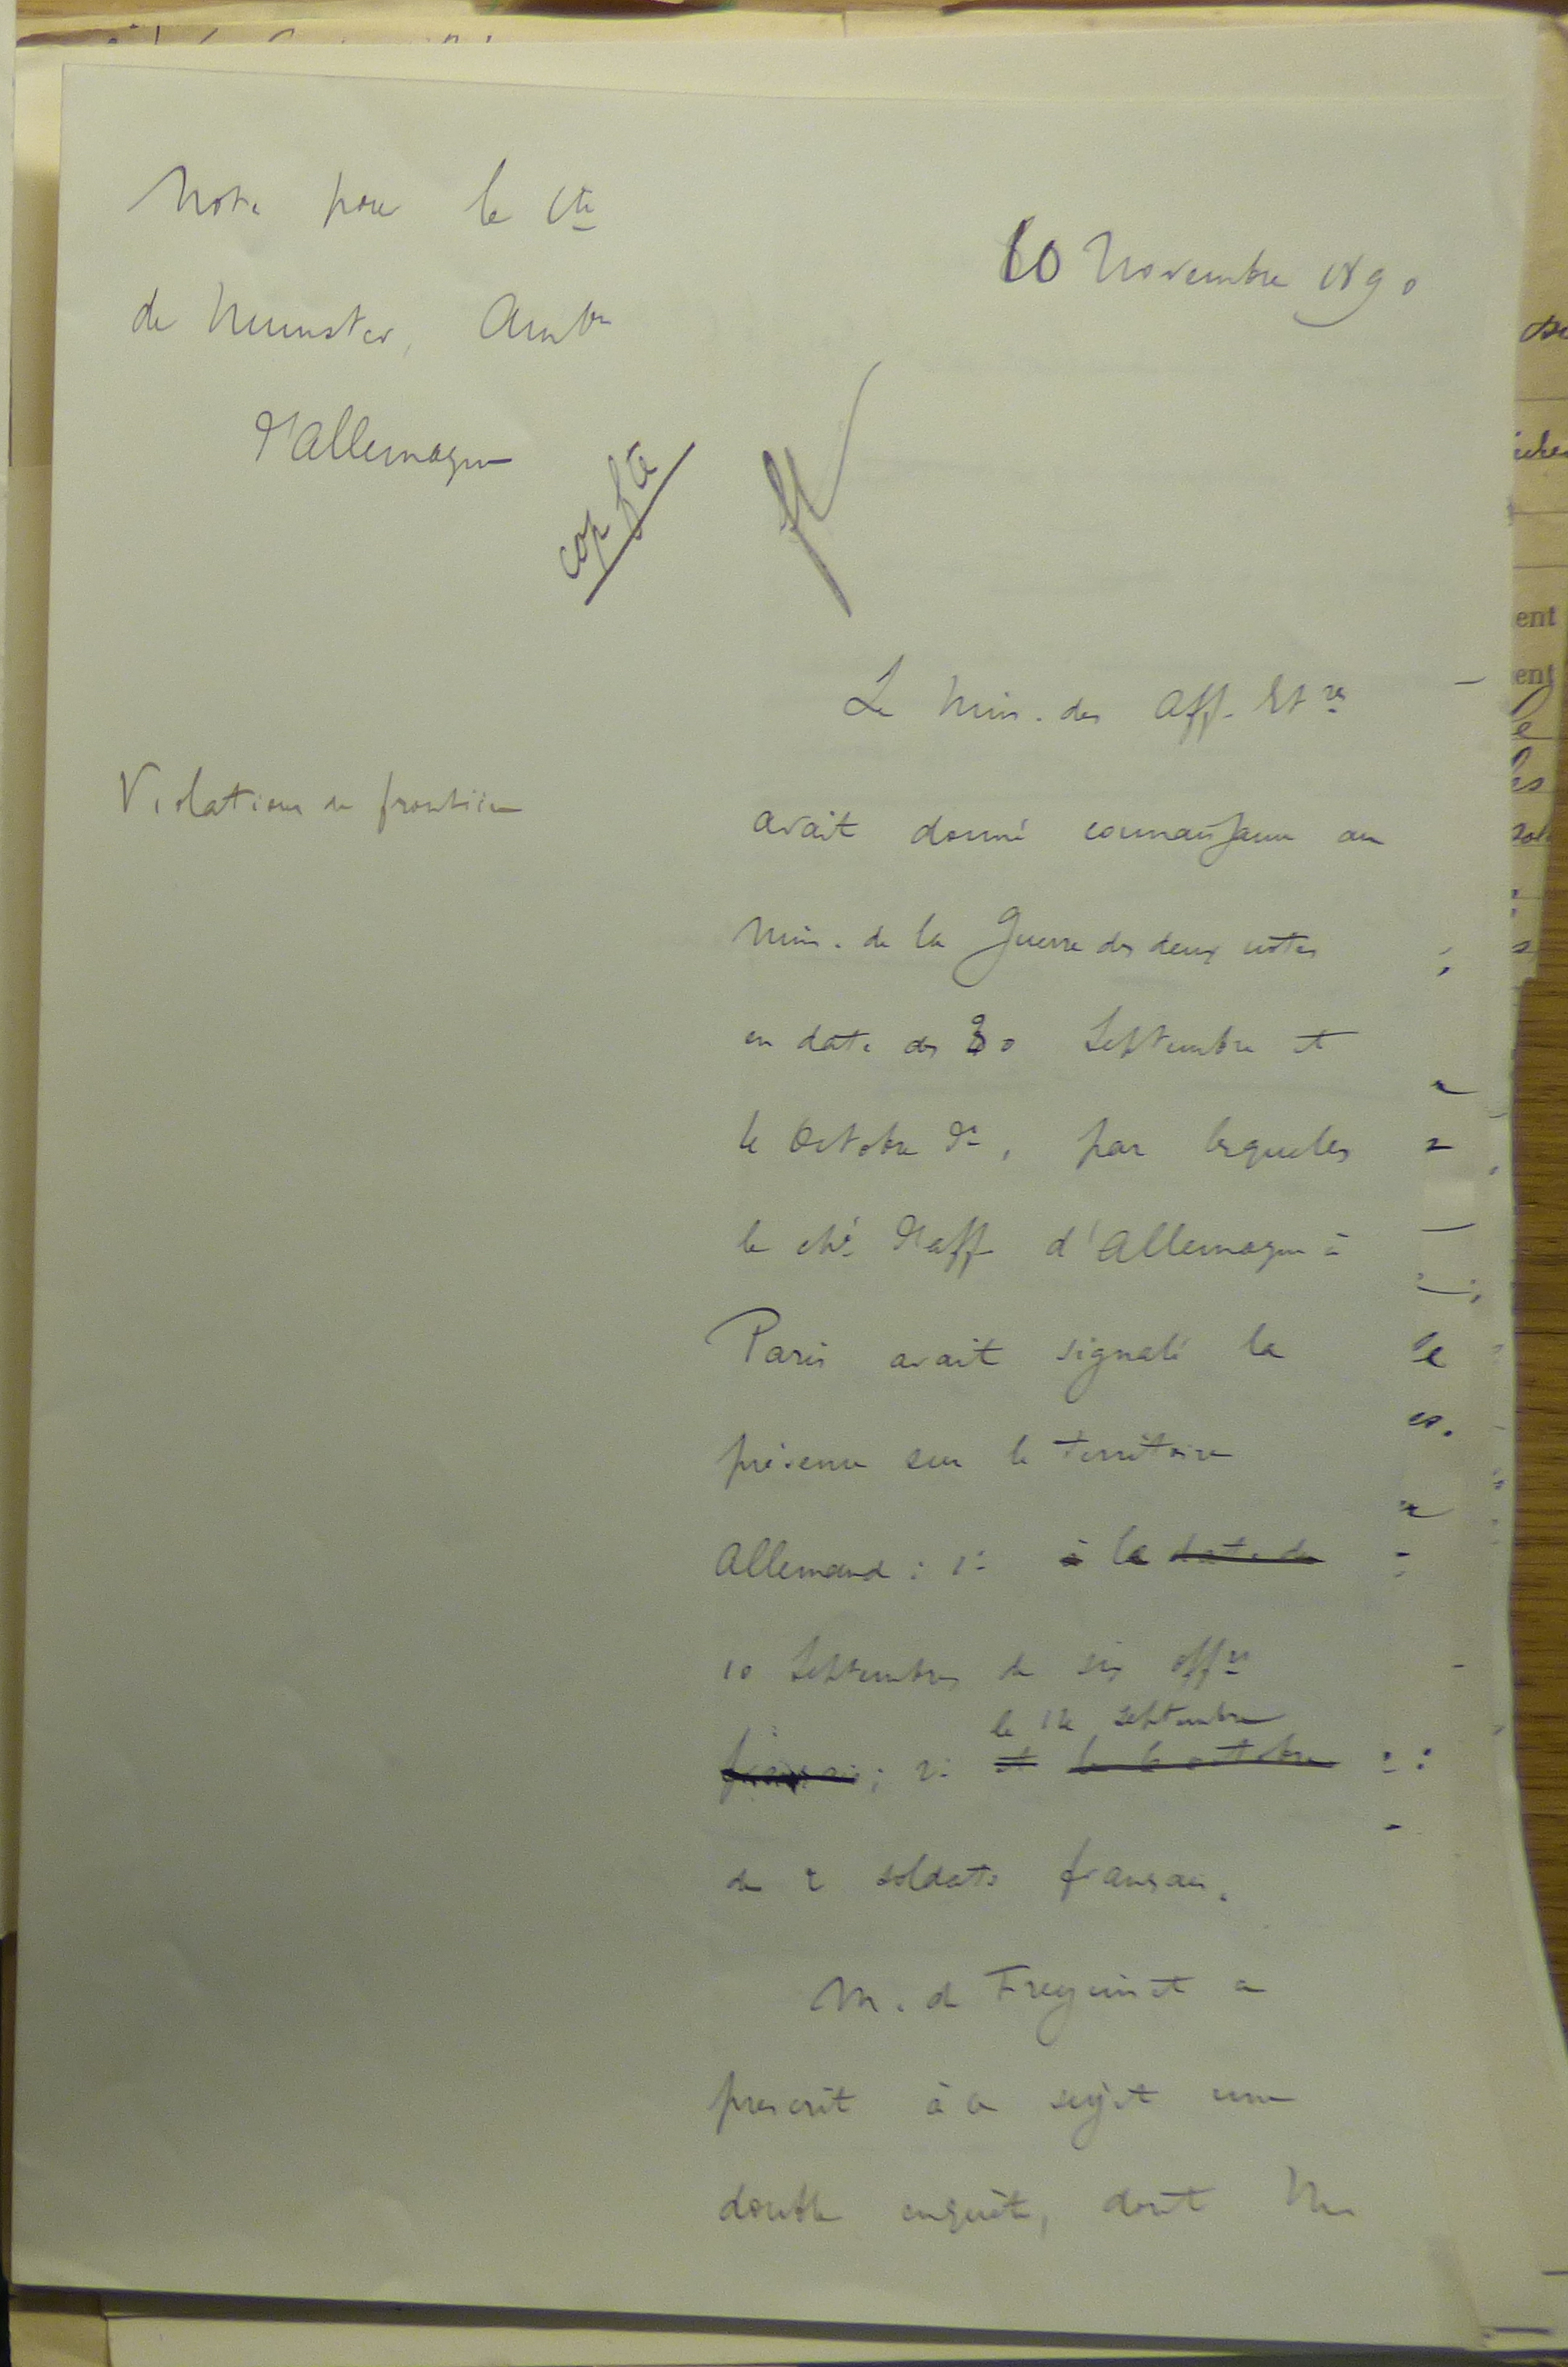 Note pour le Cte
de Munster, Ambr
d'Allemagne
10 Novembre 1890
cop fte
Le Min. des Aff. Etres
Violations de frontière
avait donné connaissance au
Min. de la Guerre des deux notes
en date des 30 Septembre et
6 Octobre dr, par lesquelles
le ché d'aff d'Allemagne à
Paris avait signalé la
présence sur le territoire
Allemand : 1º à le date du
10 Septembre de six offrs
le 12 septembre
français ; 2º et le 6 octobre
de 2 soldats français.
M. de Freycinet a
prescrit à ce sujet une
double enquête, dont